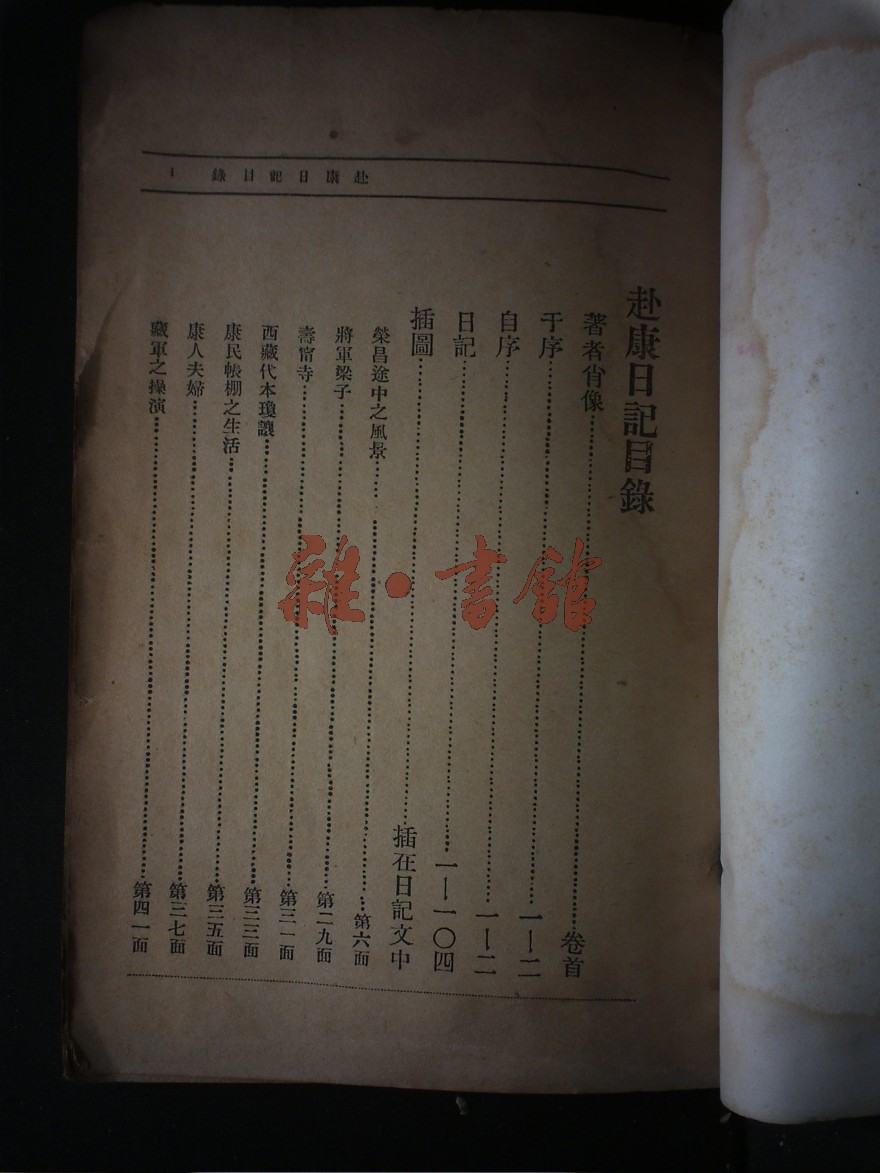 赴康日記目錄 1
赴康日記目錄
著者肖像……卷首
于序……一—二
自序……一—二
日記……一—一〇四
插圖……插在日記文中
榮昌途中之風景……第六面
將軍梁子……第二九面
壽寗寺……第三一面
西藏代本瓊讓……第三三面
康民帳棚之生活……第三五面
康人夫婦……第三七面
藏軍之操演……第四一面
雜·書館